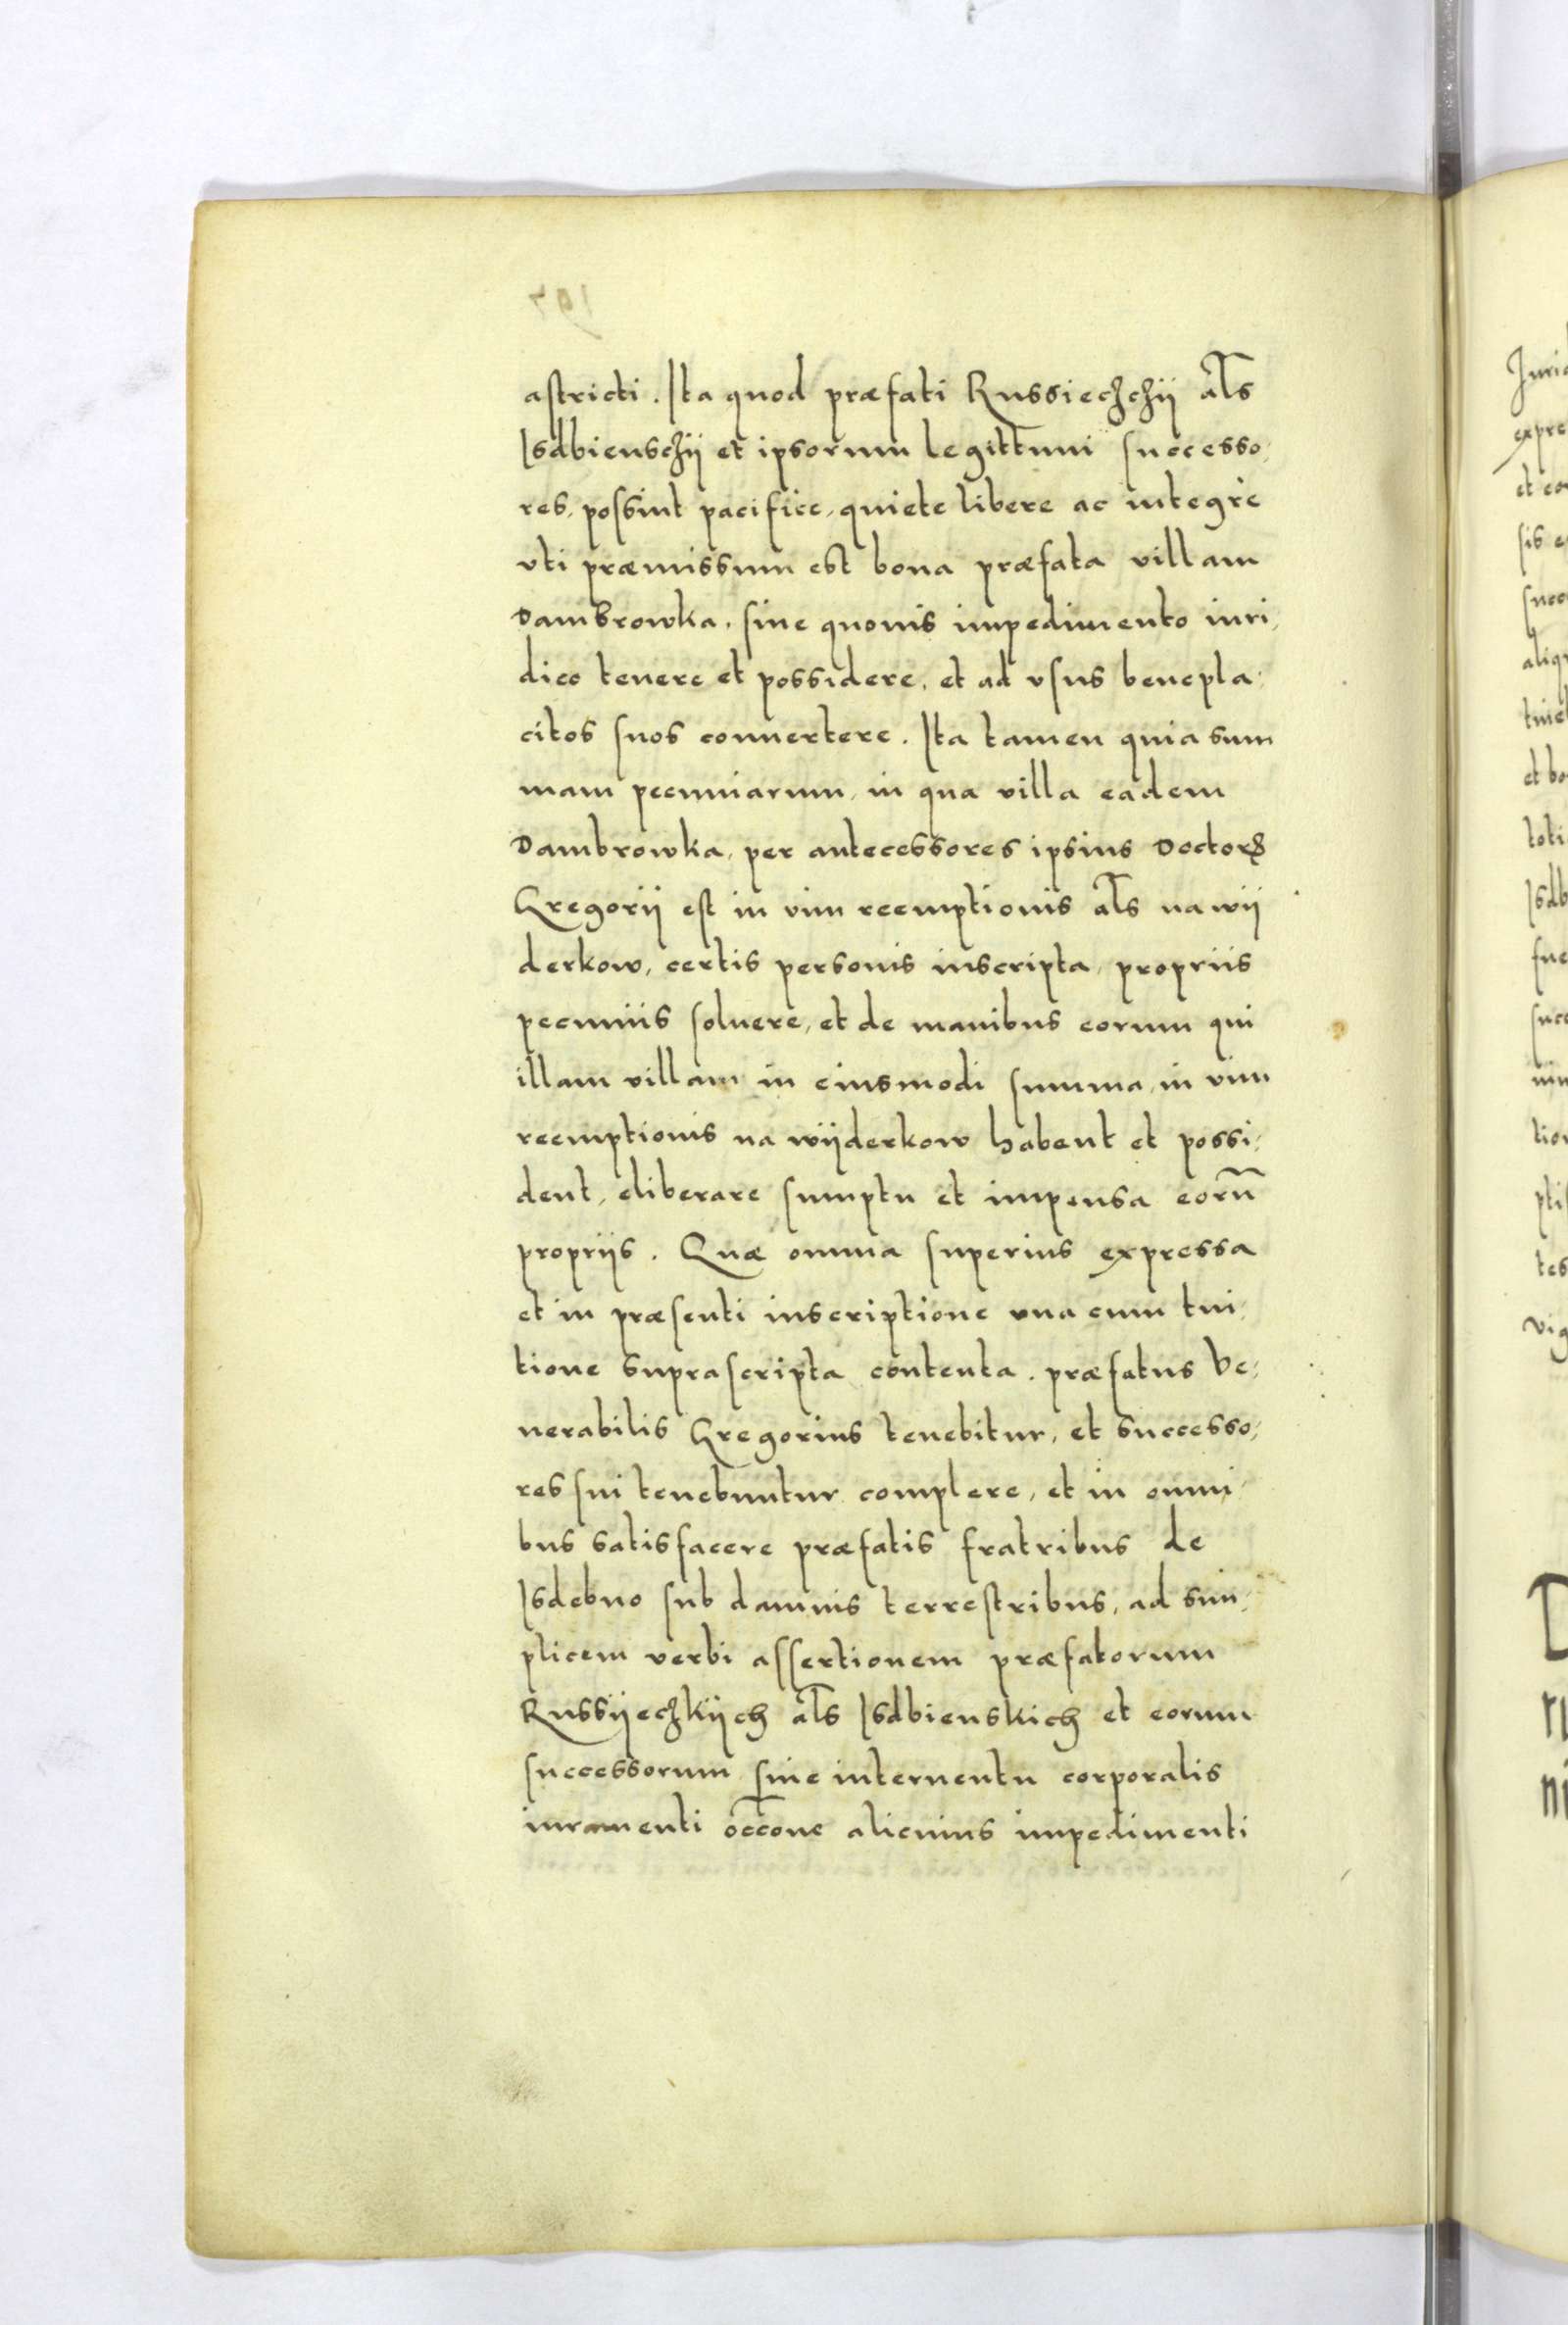 astricti. Ita quod præfati Russieczchÿ als
Isdbienschÿ et ipsorum legittimi successo,
res, possint pacifice, quiete libere ac integrè
vti præmissum est bona præfata villam
Dambrowka, sine quouis impedimento iuri,
dico tenere et possidere, et ad vsus benepla,
citos suos conuertere. Ita tamen quia sum
mam pecuniarum, in qua villa eadem
Dambrowka, per antecessores ipsius Doctoris
Gregorÿ est in vim reemptionis als na wÿ
derkow, certis personis inscripta, propriis
pecuniis soluere, et de manibus eorum qui
illam villam in eiusmodi summa, in vim
reemptionis na wÿderkow habent et possi,
dent, eliberare sumptu et impensa eorū
propriis. Quæ omnia superius expressa
et in præsenti inscriptione vna cum tui,
tione suprascripta contenta. præfatus Ve,
nerabilis Gregorius tenebitur, et successo,
res sui tenebuntur complere, et in omni,
bus satisfacere præfatis fratribus de
Isdebno sub damnis terrestribus, ad sim,
plicem verbi assertionem præfatorum
Russÿeczkÿch als Isdbienskich et eorum
successorum sine interuentu corporalis
iuramenti occōne alicuius impedimenti